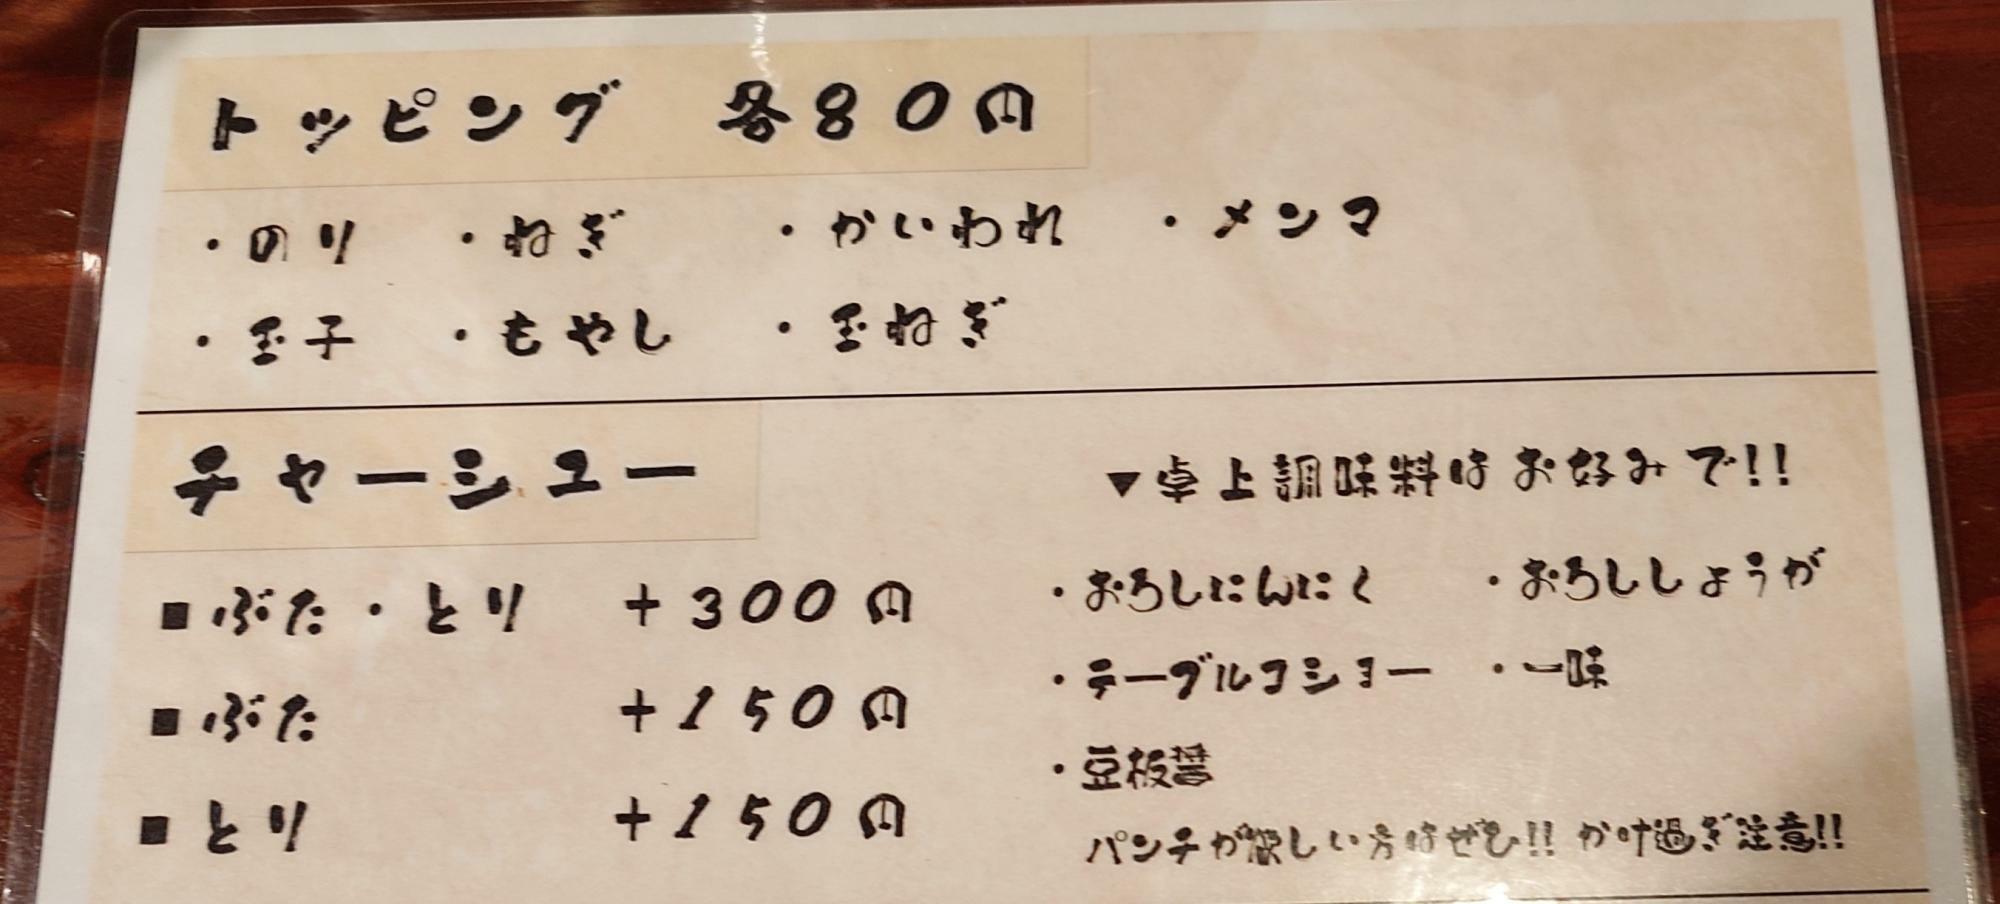 トッピング 各80円
・のり ・ねぎ ・かいわれ ・メンマ
・玉子 ・もやし ・玉ねぎ
チャーシュー
■ぶた・とり +300円
■ぶた +150円
■とり +150円
▼卓上調味料はお好みで!!
・おろしにんにく ・おろししょうが
・テーブルコショー ・一味
・豆板醤
パンチが欲しい方はぜひ!! かけ過ぎ注意!!